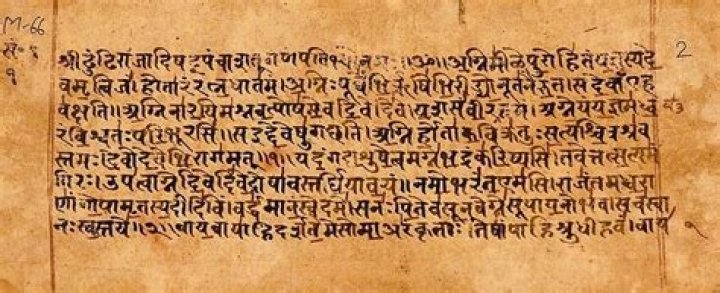 M-66
सं॰ १
१
2
॥ॐ॥ अग्निमीळे पुरोहितं यज्ञस्य दे
वमृत्विजं । होतारं रत्नधातमं । अग्निः पूर्वेभिर्ऋषिभिरीड्यो नूतनैरुत । स देवाँ एह
वक्षति ॥ अग्निना रयिमश्नवत्पोषमेव दिवेदिवे । यशसं वीरवत्तमं । अग्ने यं यज्ञमध्व
रं विश्वतः परिभूरसि । स इद्देवेषु गच्छति ॥ अग्निर्होता कविक्रतुः सत्यश्चित्रश्रव
स्तमः । देवो देवेभिरागमत् ॥१॥ यदंग दाशुषे त्वमग्ने भद्रं करिष्यसि । तवेत्तत्सत्यमं
गिरः । उप त्वाग्ने दिवेदिवे दोषावस्तर्धिया वयं ॥ नमो भरंत एमसि । राजंतमध्वरा
णां गोपामृतस्य दीदिविं । वर्धमानं स्वे दमे । स नः पितेव सूनवेग्ने सूपायनो भव । सचस्वा
नः स्वस्तये ॥२॥ वायवा याहि दर्शतेमे सोमा अरंकृताः । तेषां पाहि श्रुधी हवं । वाय